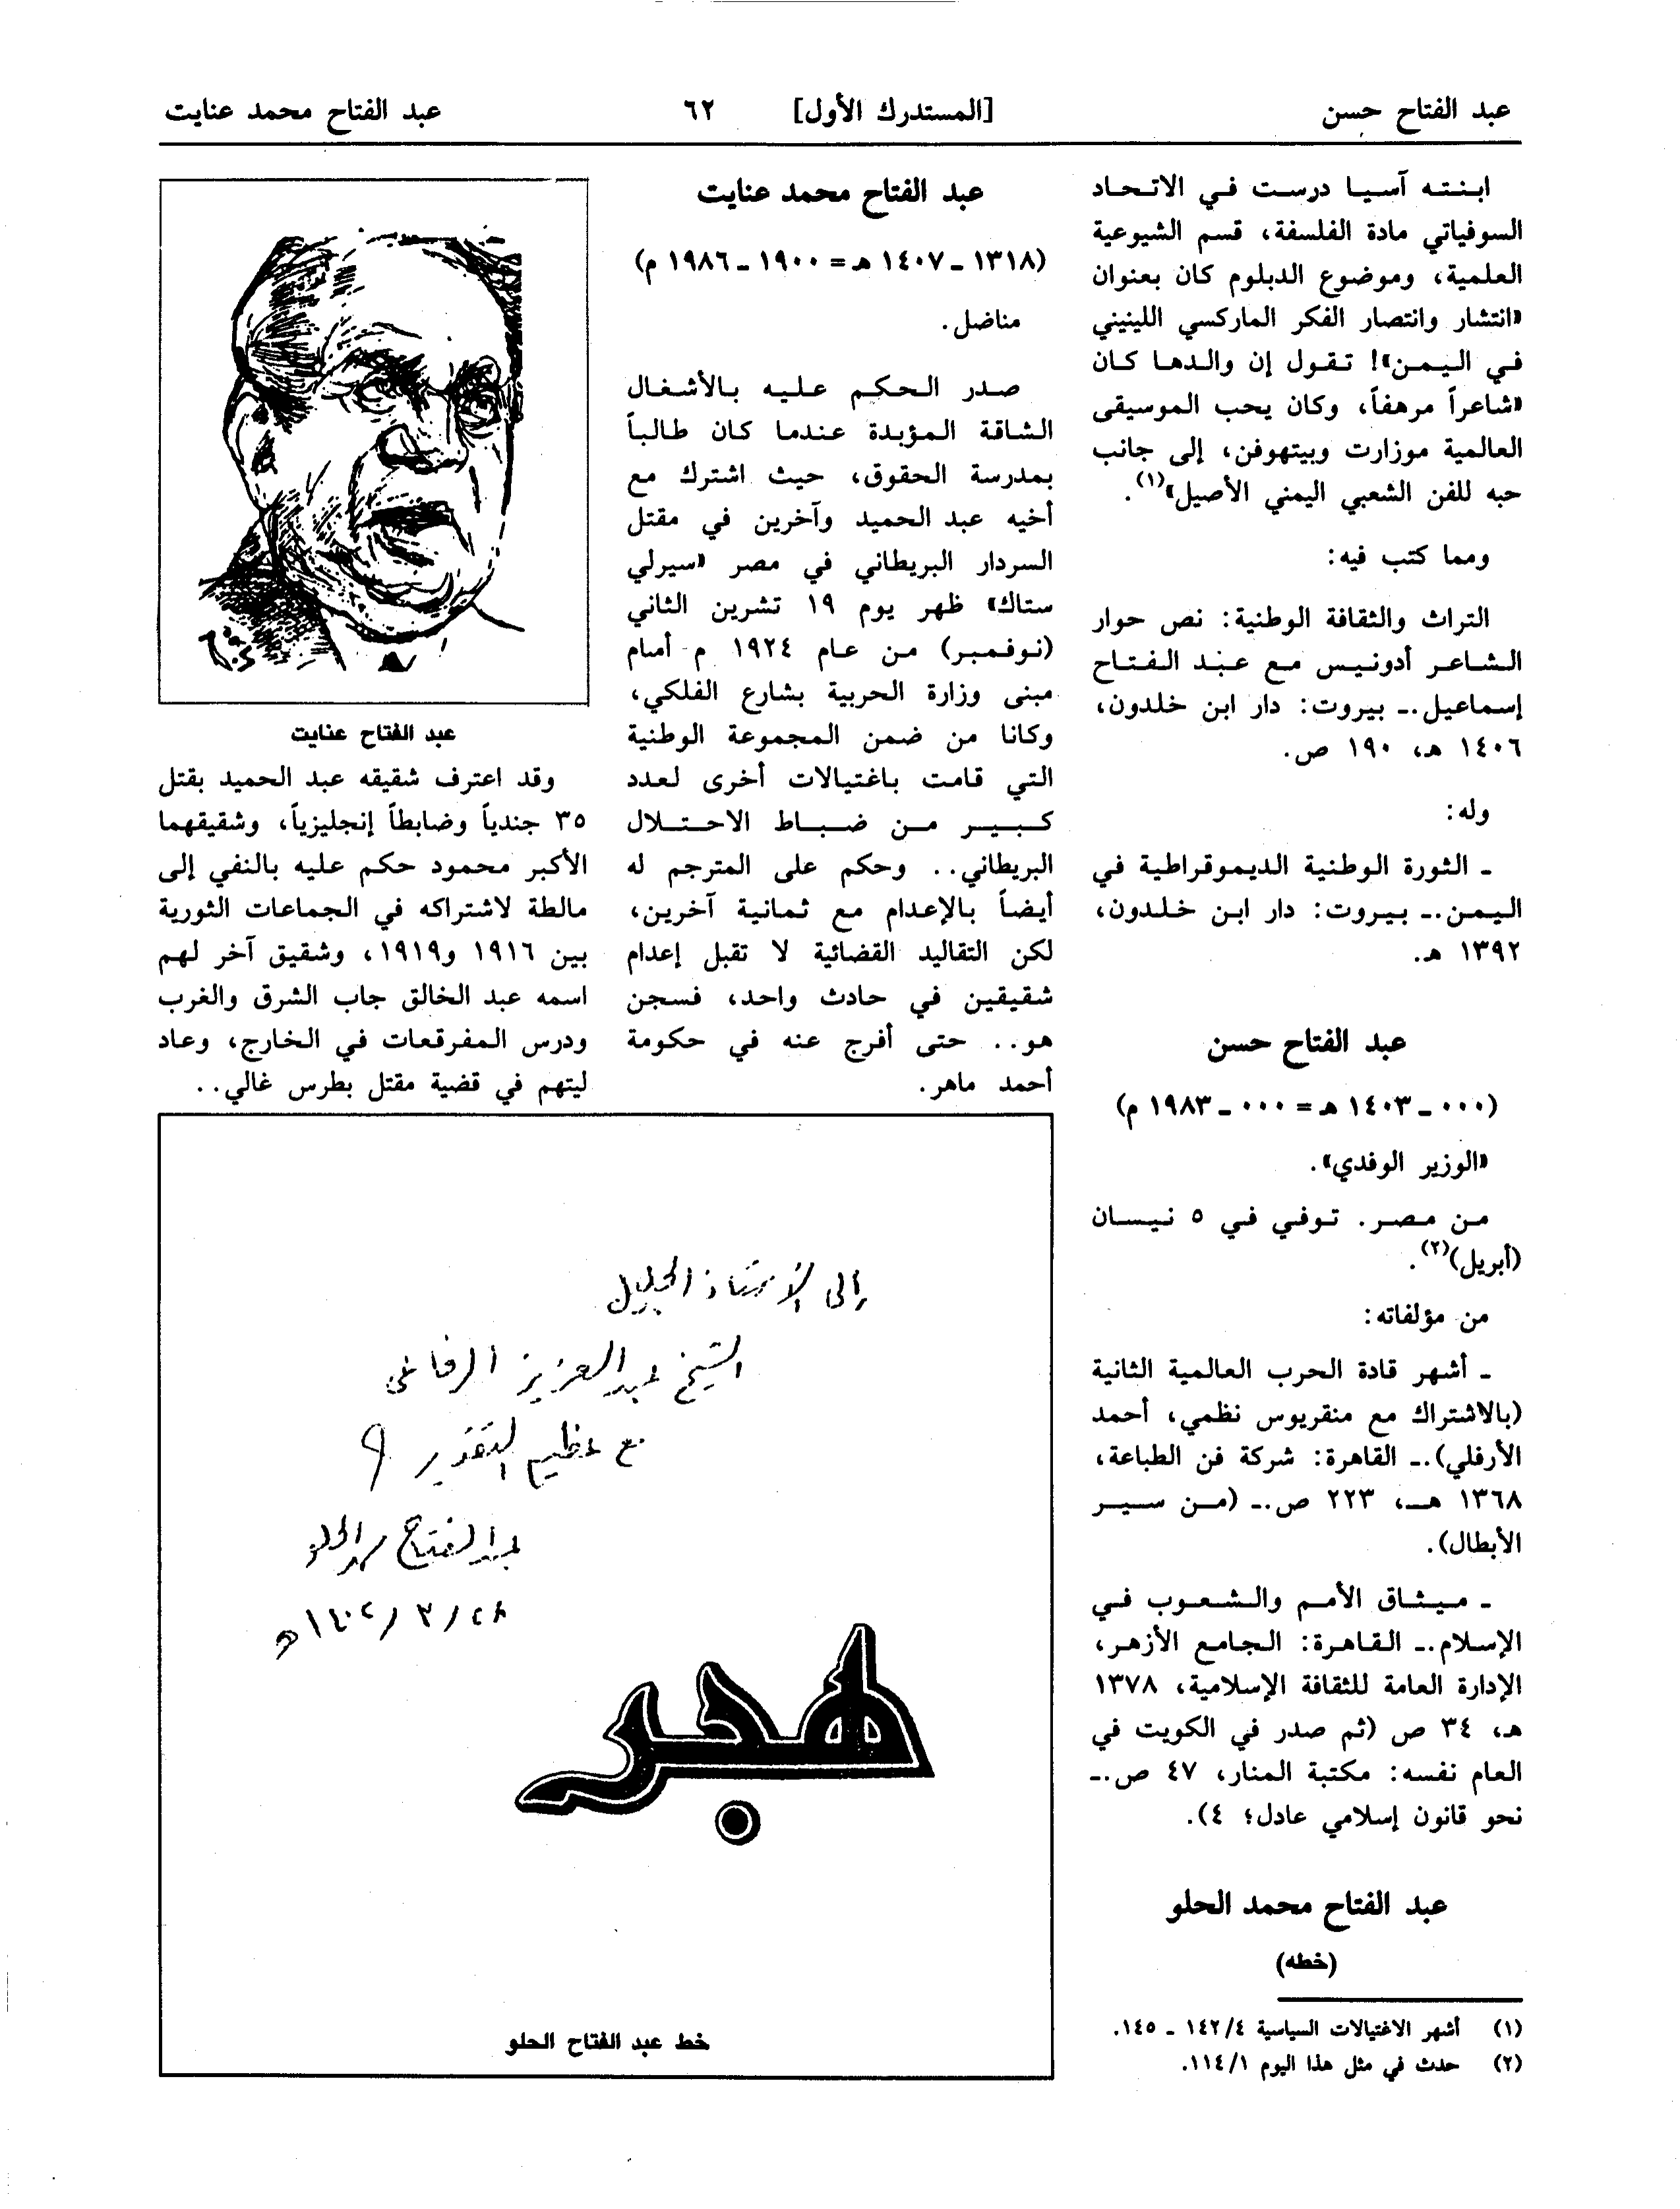 عبد الفتاح حسن
[المستدرك الأول]
٦٢
عبد الفتاح محمد عنايت
ابنته آسيا درست في الاتحاد
السوفياتي مادة الفلسفة، قسم الشيوعية
العلمية، وموضوع الدبلوم كان بعنوان
«انتشار وانتصار الفكر الماركسي اللينيني
في اليمن»! تقول إن والدها كان
«شاعراً مرهفاً، وكان يحب الموسيقى
العالمية موزارت وبيتهوفن، إلى جانب
حبه للفن الشعبي اليمني الأصيل»(١).
ومما كتب فيه:
التراث والثقافة الوطنية: نص حوار
الشاعر أدونيس مع عبد الفتاح
إسماعيل.ـ بيروت: دار ابن خلدون،
١٤٠٦ هـ، ١٩٠ ص.
وله:
ـ الثورة الوطنية الديموقراطية في
اليمن.ـ بيروت: دار ابن خلدون،
١٣٩٢ هـ.
عبد الفتاح حسن
(٠٠٠ ـ ١٤٠٣ هـ = ٠٠٠ ـ ١٩٨٣ م)
«الوزير الوفدي».
من مصر. توفي في ٥ نيسان
(أبريل)(٢).
من مؤلفاته:
ـ أشهر قادة الحرب العالمية الثانية
(بالاشتراك مع منقريوس نظمي، أحمد
الأرفلي).ـ القاهرة: شركة فن الطباعة،
١٣٦٨ هـ، ٢٢٣ ص.ـ (من سير
الأبطال).
ـ ميثاق الأمم والشعوب في
الإسلام.ـ القاهرة: الجامع الأزهر،
الإدارة العامة للثقافة الإسلامية، ١٣٧٨
هـ، ٣٤ ص (ثم صدر في الكويت في
العام نفسه: مكتبة المنار، ٤٧ ص.ـ
نحو قانون إسلامي عادل؛ ٤).
عبد الفتاح محمد الحلو
(خطه)
(١) أشهر الاغتيالات السياسية ١٤٢/٤ ـ ١٤٥.
(٢) حدث في مثل هذا اليوم ١١٤/١.
عبد الفتاح محمد عنايت
(١٣١٨ ـ ١٤٠٧ هـ = ١٩٠٠ ـ ١٩٨٦ م)
مناضل.
صدر الحكم عليه بالأشغال
الشاقة المؤبدة عندما كان طالباً
بمدرسة الحقوق، حيث اشترك مع
أخيه عبد الحميد وآخرين في مقتل
السردار البريطاني في مصر «سيرلي
ستاك» ظهر يوم ١٩ تشرين الثاني
(نوفمبر) من عام ١٩٢٤ م أمام
مبنى وزارة الحربية بشارع الفلكي،
وكانا من ضمن المجموعة الوطنية
التي قامت باغتيالات أخرى لعدد
كبير من ضباط الاحتلال
البريطاني.. وحكم على المترجم له
أيضاً بالإعدام مع ثمانية آخرين،
لكن التقاليد القضائية لا تقبل إعدام
شقيقين في حادث واحد، فسجن
هو.. حتى أفرج عنه في حكومة
أحمد ماهر.
عبد الفتاح عنايت
وقد اعترف شقيقه عبد الحميد بقتل
٣٥ جندياً وضابطاً إنجليزياً، وشقيقهما
الأكبر محمود حكم عليه بالنفي إلى
مالطة لاشتراكه في الجماعات الثورية
بين ١٩١٦ و١٩١٩، وشقيق آخر لهم
اسمه عبد الخالق جاب الشرق والغرب
ودرس المفرقعات في الخارج، وعاد
ليتهم في قضية مقتل بطرس غالي..
إلى الأستاذ الجليل
الشيخ عبد العزيز الرفاعي
مع عظيم التقدير
عبد الفتاح محمد الحلو
٢٨/٣/١٤٠٢هـ
هجر
خط عبد الفتاح الحلو